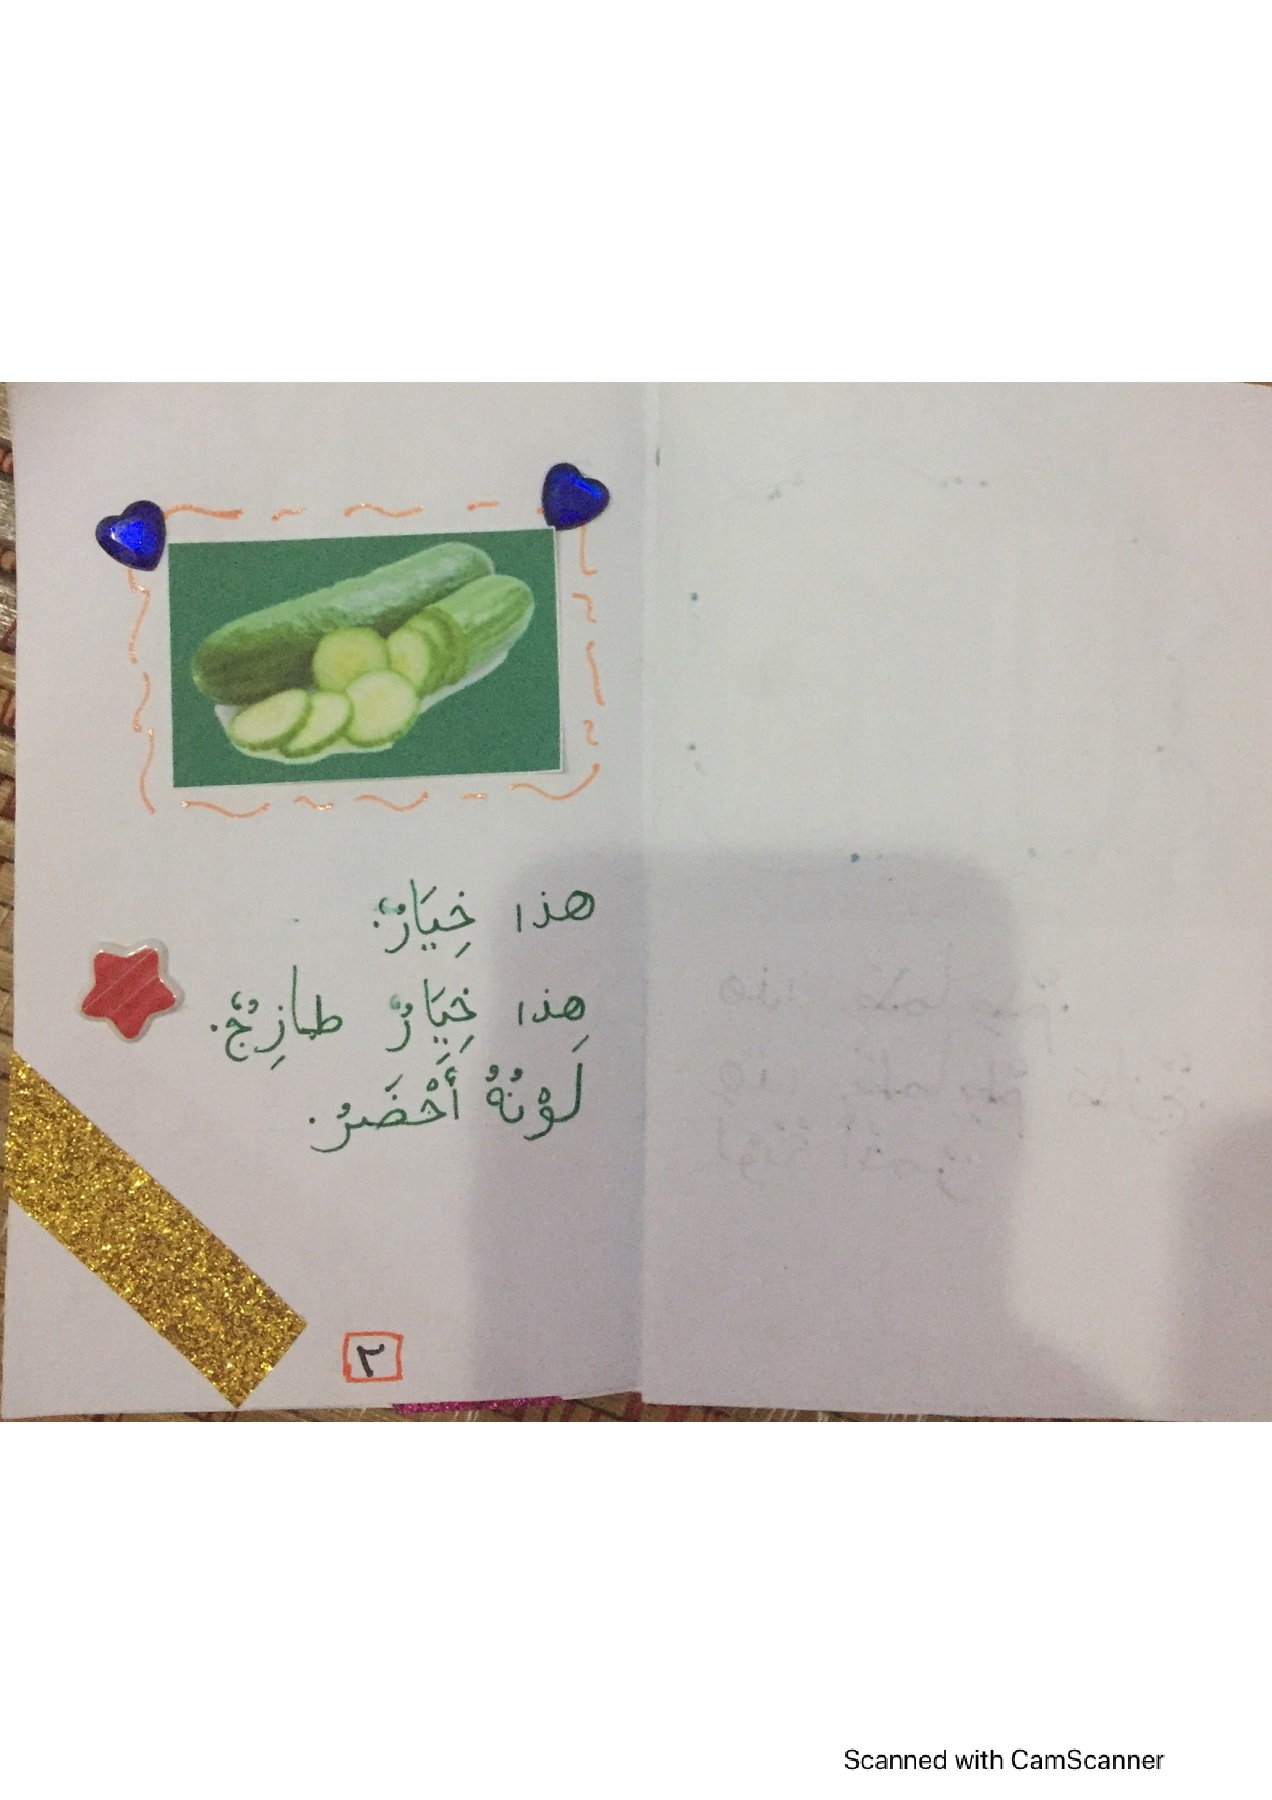 هذا خِيَارٌ.
هِذا خِيَارٌ طازِجٌ.
لَوْنُهُ أَخْضَرُ.
٢
Scanned with CamScanner